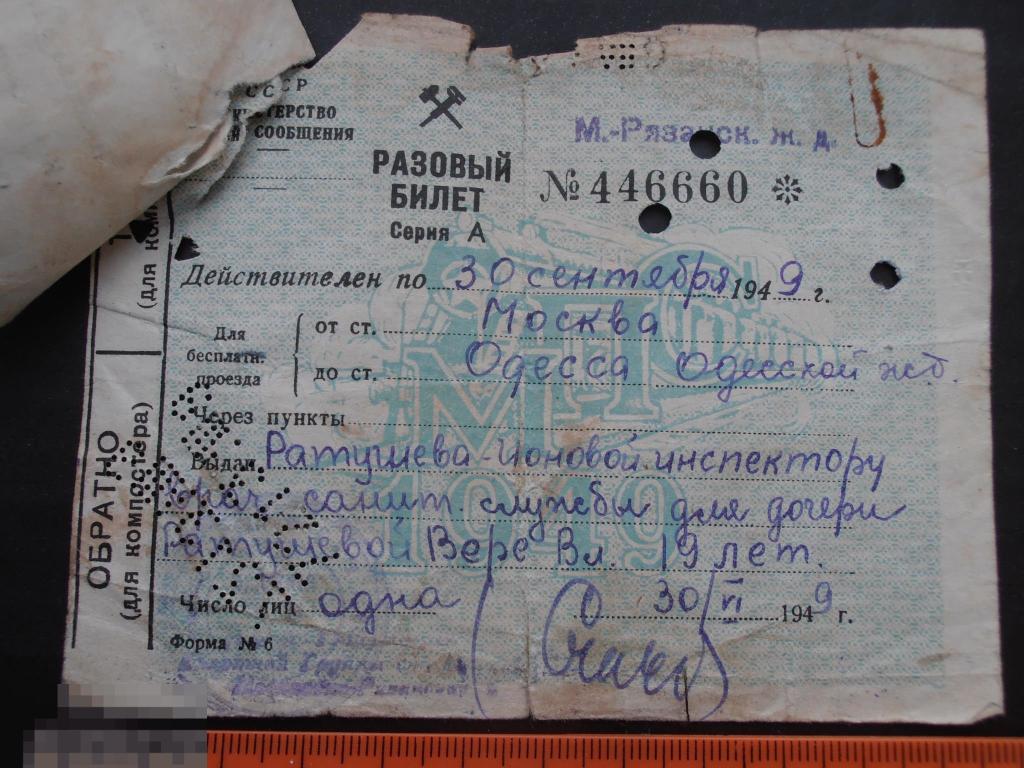 СССР
СООБЩЕНИЯ
М.-Рязанск. ж. д.
РАЗОВЫЙ
БИЛЕТ
Серия А
№ 446660
Действителен по 30 сентября 1949 г.
Для бесплатн. проезда
от ст. Москва
до ст. Одесса Одесской жд.
Через пункты
Выдан Ратушева-Ионовой инспектору
врач. санит. службы для дочери
Ратушевой Вере Вл. 19 лет.
Число лиц одна 30/VI 1949 г.
Форма № 6
ОБРАТНО
(для компостера)
МПС
1949